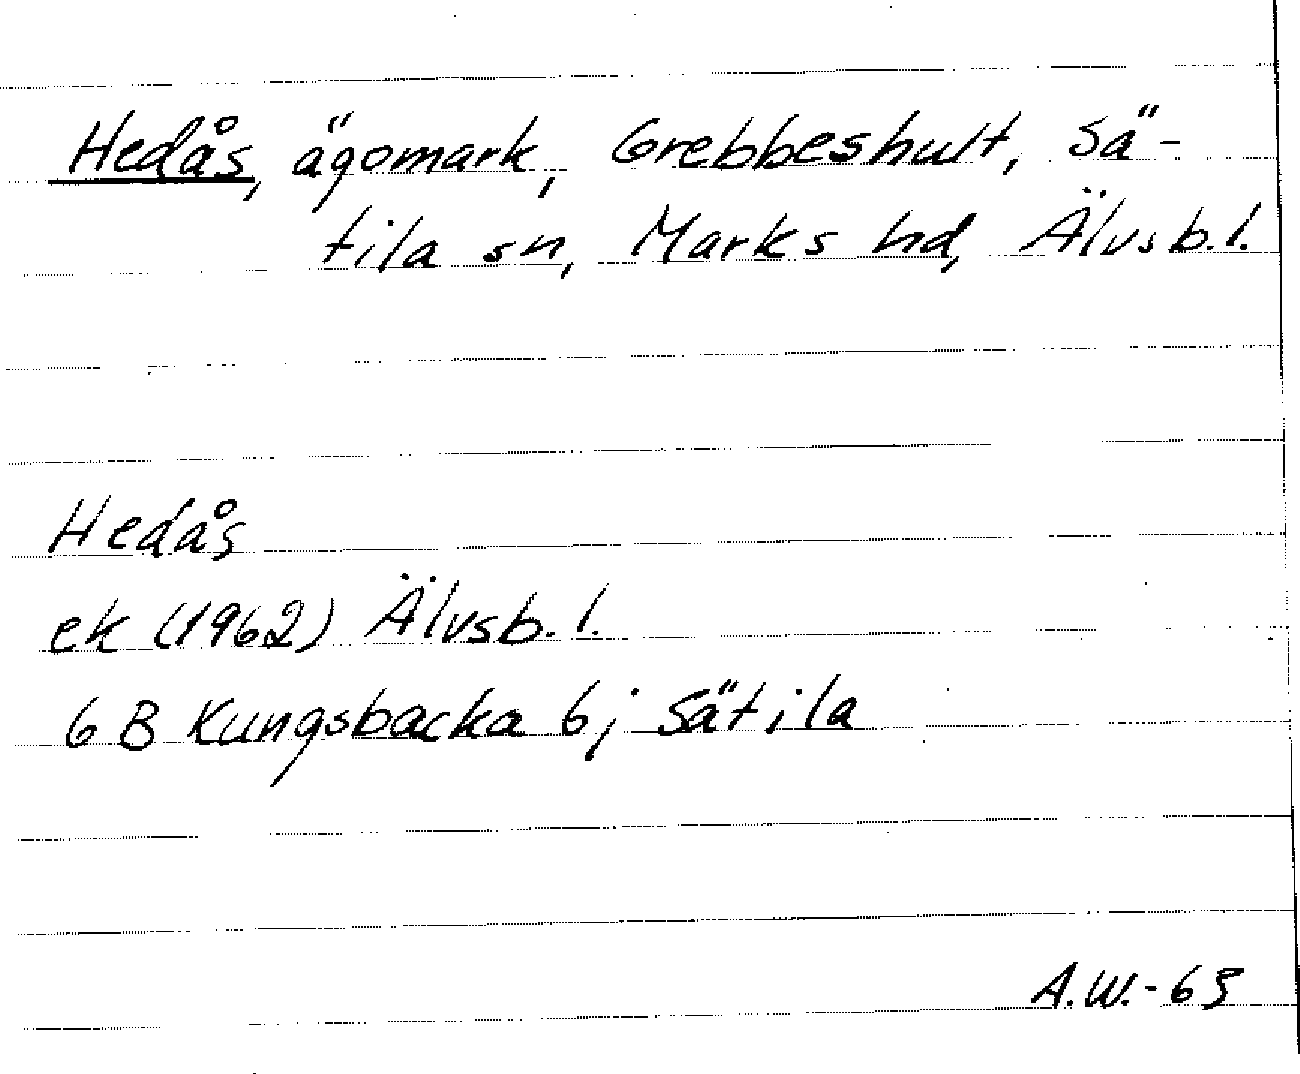 Hedås, ägomark, Grebbeshult, Sä-
tila sn, Marks hd, Älvsb.l.
Hedås
ek (1962) Älvsb.l.
6 B Kungsbacka 6j Sätila
A.W.-63